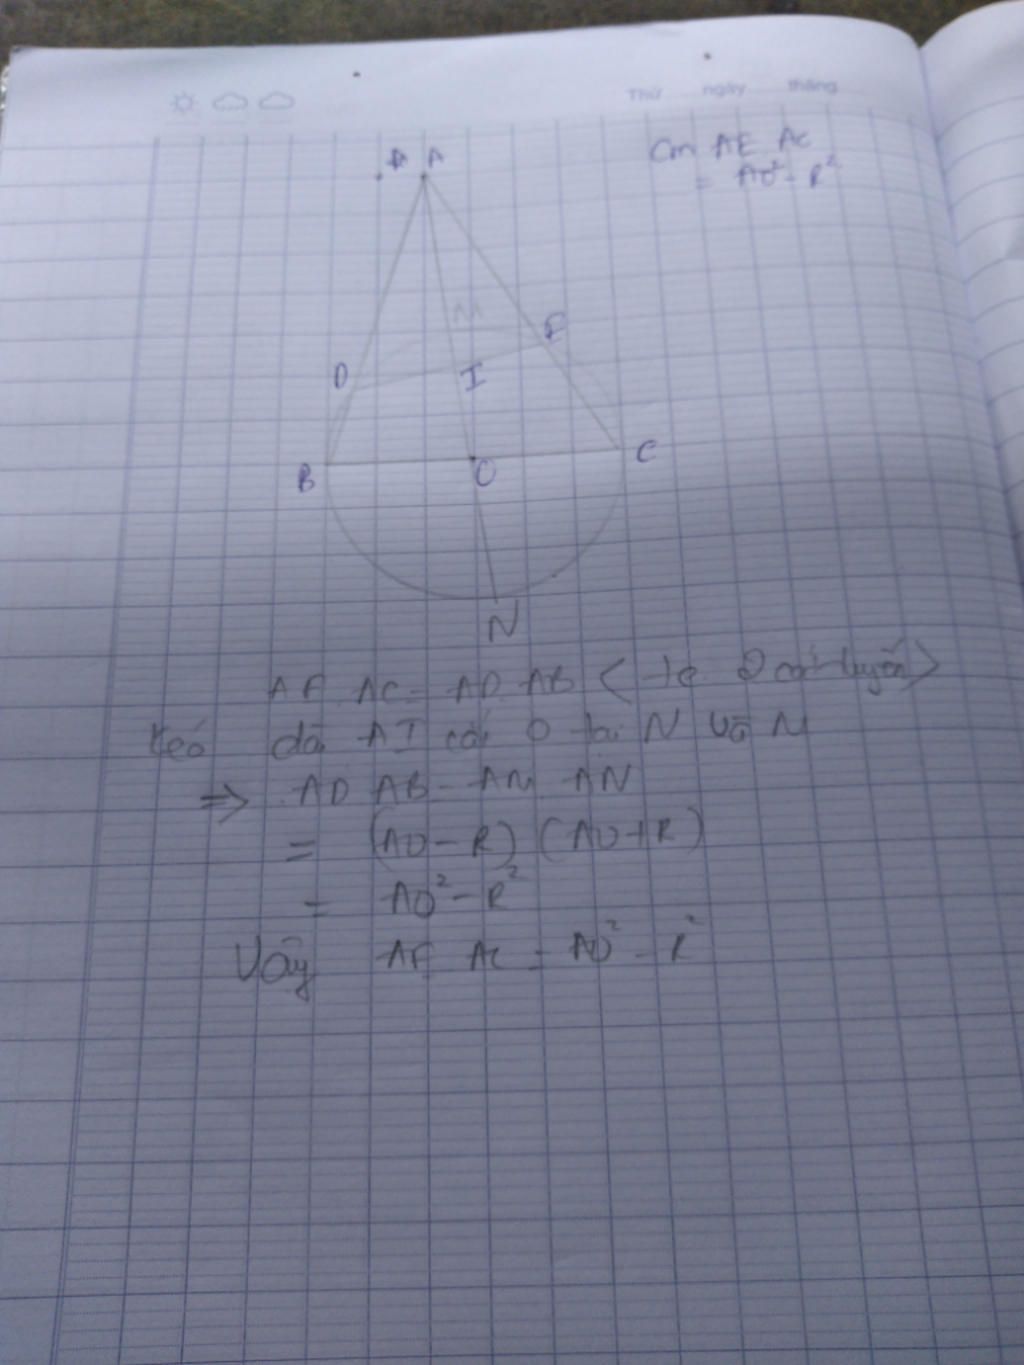 Thứ ngày tháng
A A
Cm AE AC
= AO² - R²
M
E
D
I
B
O
C
N
AE AC = AD AB < 2 cát tuyến >
Kéo dài AI cắt O tại N và M
=> AD AB = AM AN
= (AO - R) (AO + R)
= AO² - R²
Vậy AE AC = AO² - R²